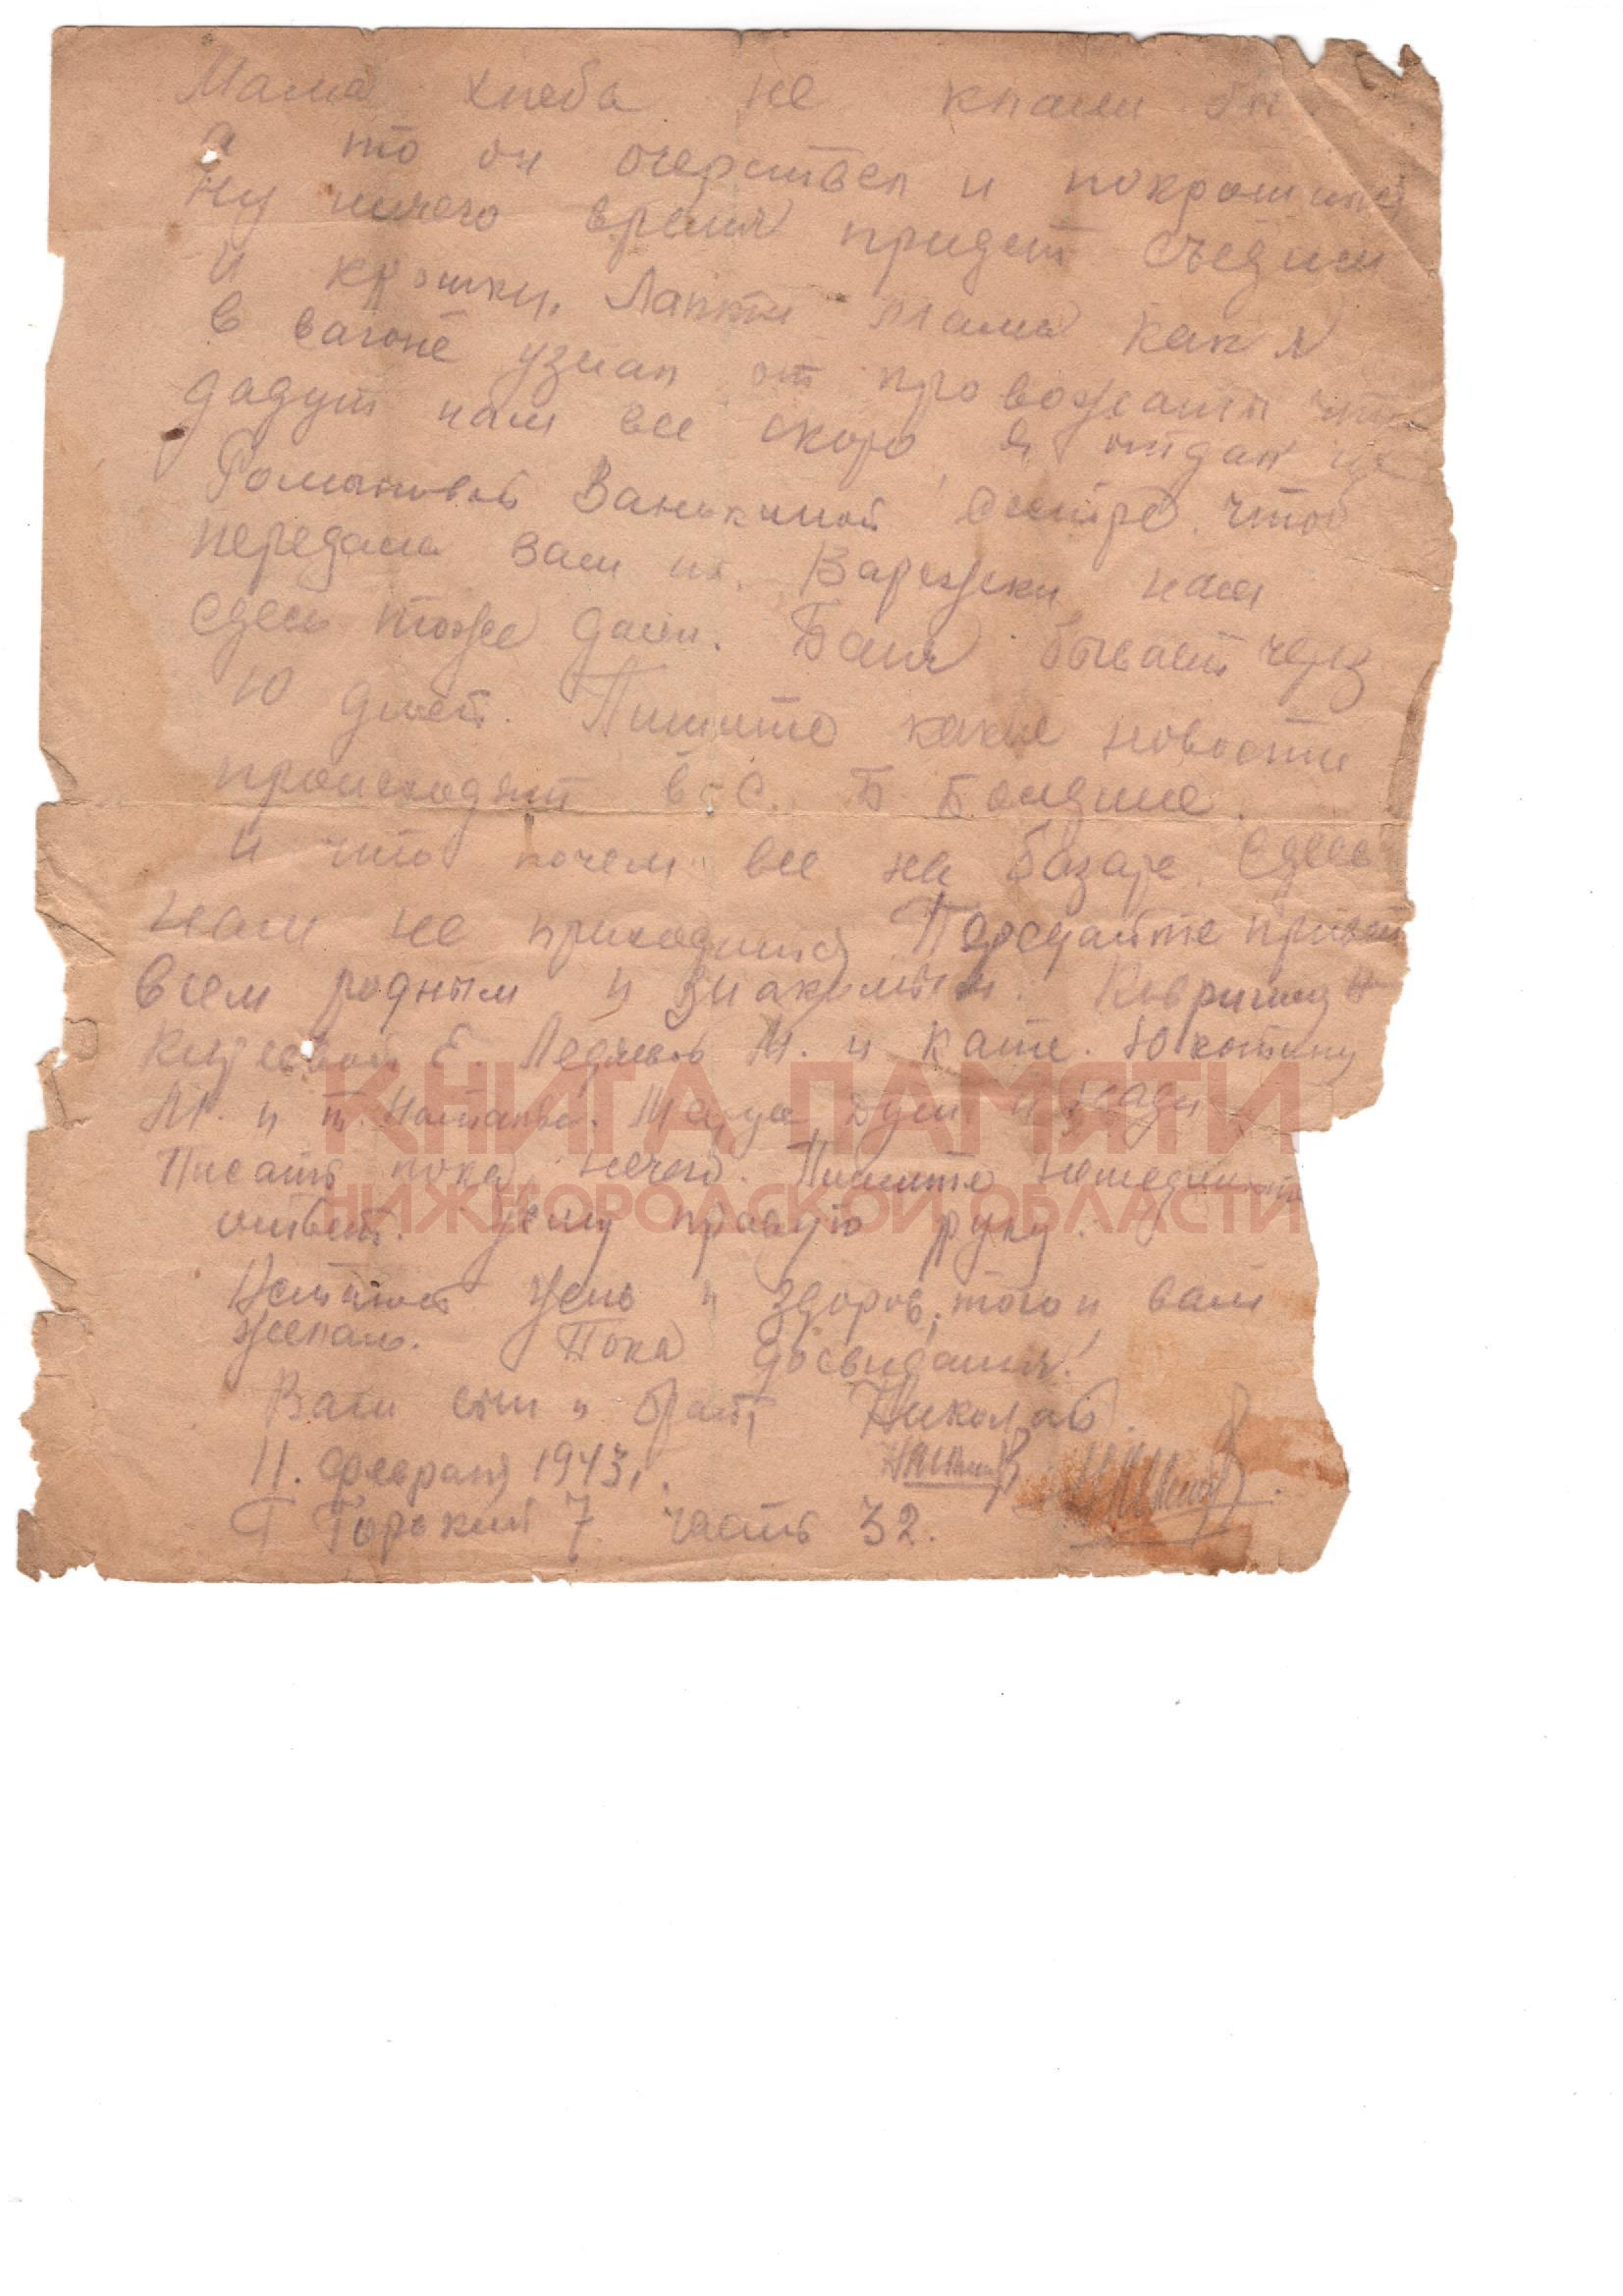 Мама хлеба не клали бы
а то он очерствел и покрошился
Ну ничего время придет съедим
и крошки. Лапти мама как я
в вагоне узнал от провожат что
дадут нам все скоро, я отдал их
Романовой Ванькиной сестре. чтоб
передала вам их. Варежки нам
сдесь тоже дали. Баня бывает через
10 дней. Пишите какие новости
происходят в с. Б Болдине.
и что почем все на базаре. Сдесь
нам не приходится Передайте привет
всем родным и знакомым.
Е. М. и Кате.
М. и т. Наталье. Марусе Дуси и
Писать пока нечего. Пишите немедленно
ответ. Жму правую руку.
и здоров, того и вам
желаю. Пока досвидания!
Ваш сын и брат Николай.
11. февраля 1943 г.
Г Горький 7 часть 32.
КНИГА ПАМЯТИ
НИЖЕГОРОДСКОЙ ОБЛАСТИ